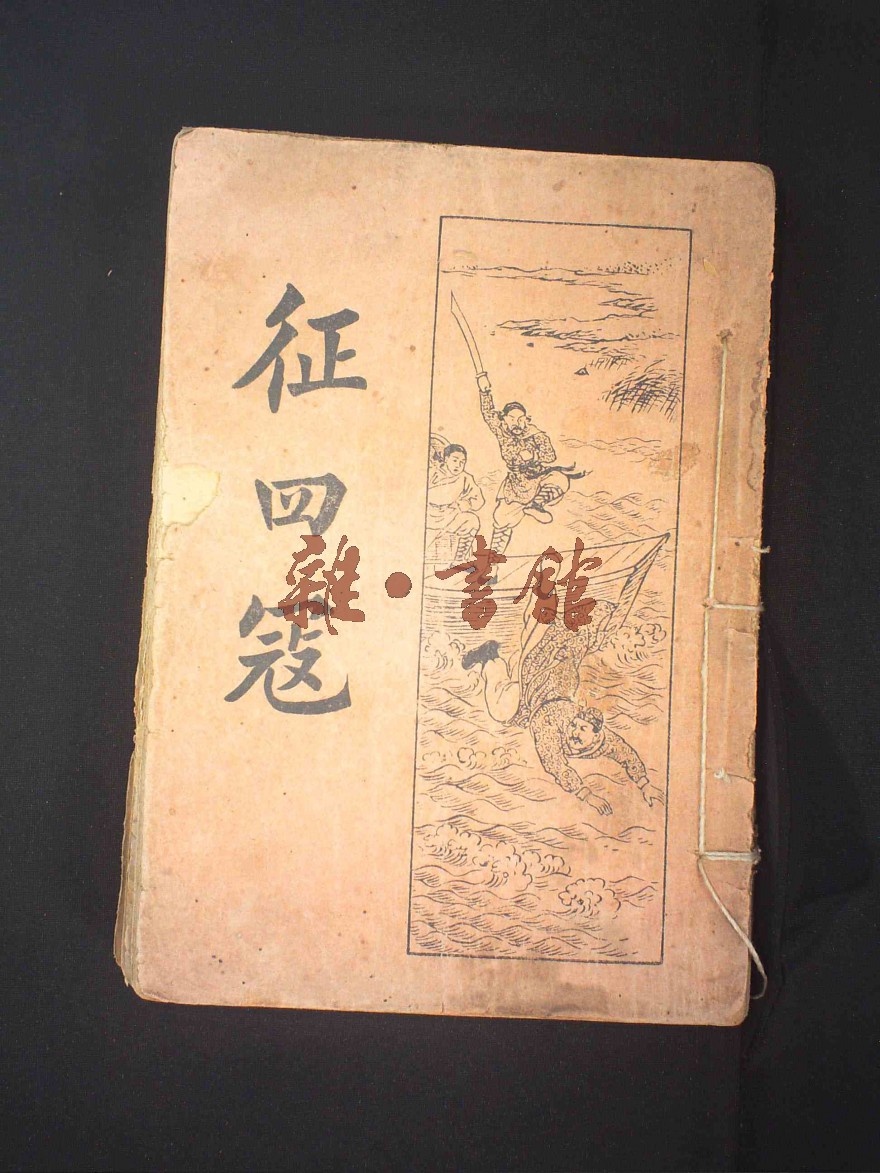 征四寇
雜·書館